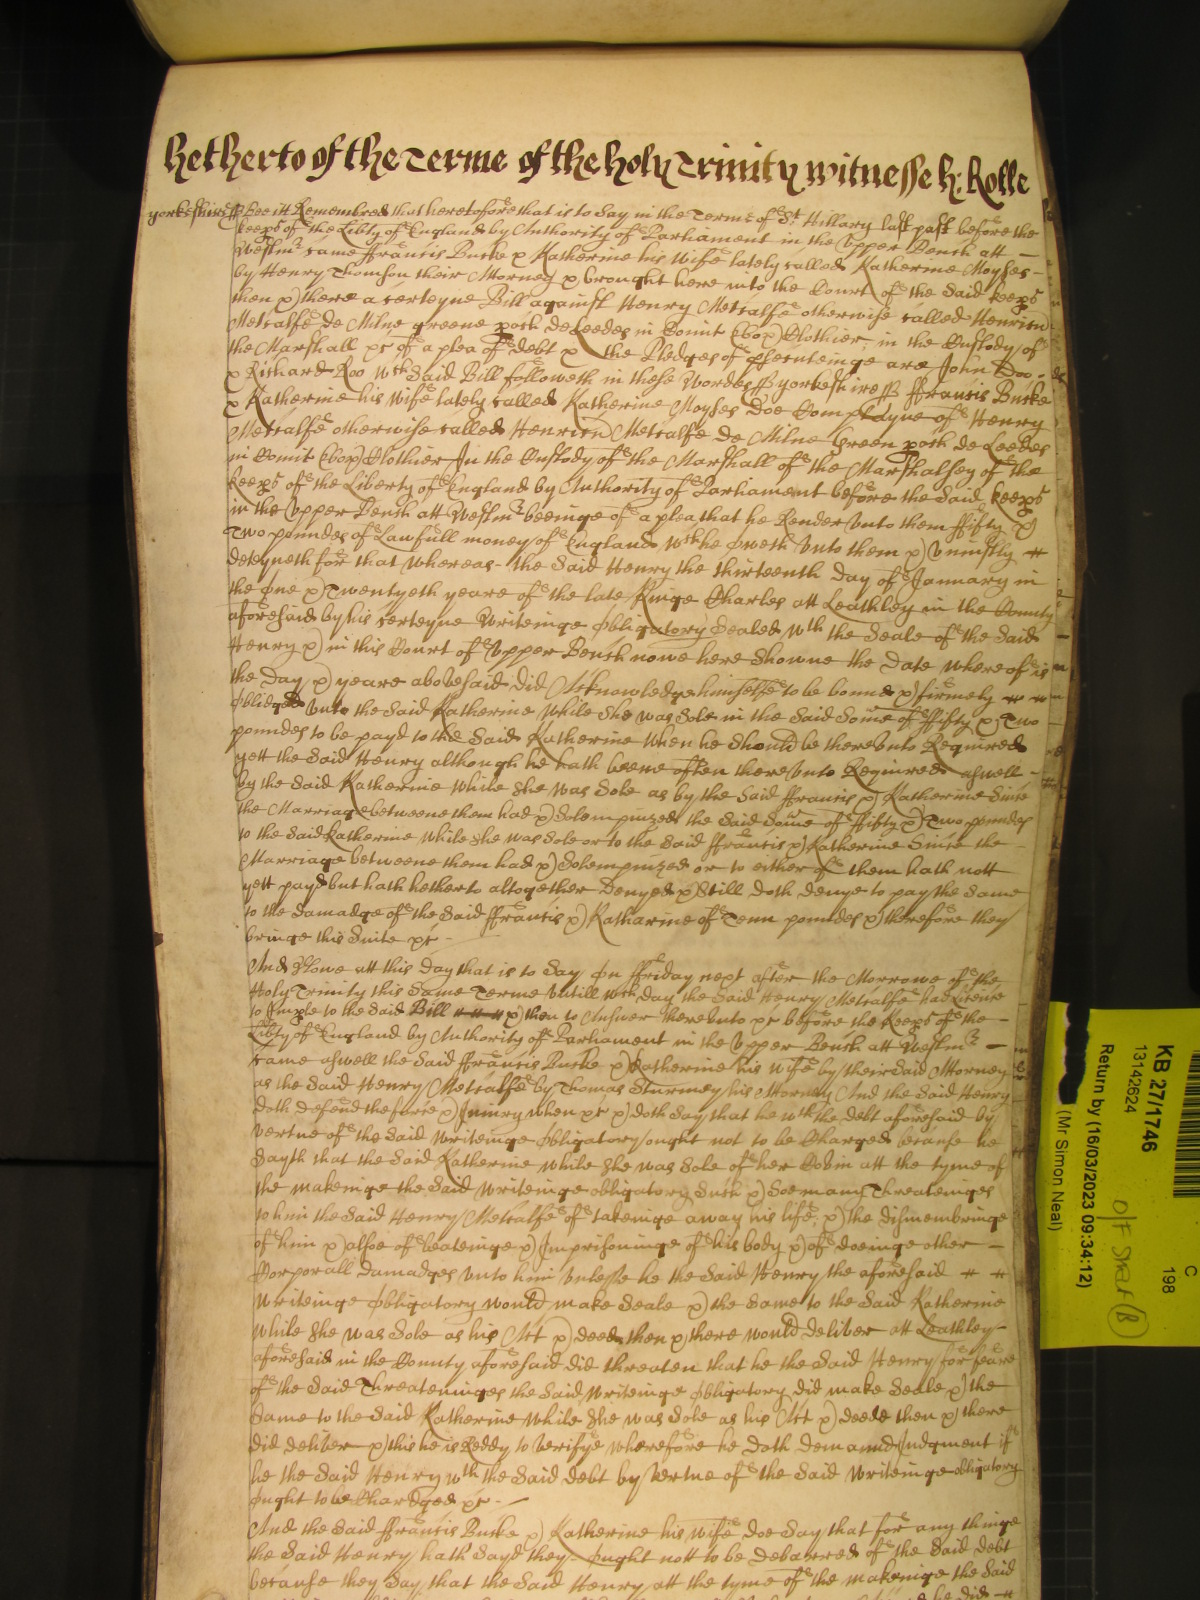 Hetherto of the Terme of the holy Trinity witnesse H: Rolle
yorkeshire ss Bee itt Remembred that heretofore that is to Say in the Terme of St Hillary last past before the
keeps of the Libty of England by Authority of Parliament in the Upper Bench att —
Westmr came ffrancis Burke & Katherine his wife lately called Katherine Moyses –
by Henry Thomson their Attorney & brought here into the Court of the said keeps
then & there a certeyne Bill against Henry Metcalfe otherwise called Henricu)
Metcalfe de Milne greene poch de Leedes in Comit (Ebor) Clothier, in the Custody of
the Marshall &c of a plea of debt & the Pledges of psecuteinge are John Doo
& Richard Roo wch Said Bill followeth in these Wordes ss yorkeshire ss ffrancis Burke
& Katherine his Wife lately called Katherine Moyses Doe Complayne of Henry
Metcalfe otherwise called Henricu) Metcalfe de Milne Green poch de Leedes
in Comit (Ebor) Clothier In the Custody of the Marshall of the Marshalsey of the
keeps of the Liberty of England by Authority of Parliament before the Said keeps
in the Upper Bench att Westmr beeinge of a plea that he Render Unto them ffifty &
Two poundes of Lawfull money of England wch he oweth Unto them & Uniustly
deteyneth for that whereas the Said Henry the thirteenth day of January in
the one & Twentyeth yeare of the late Kinge Charles att Leathley in the County
aforesaid by his certeyne Writeinge Obligatory Sealed wth the Seale of the Said
Henry & in this Court of Upper Bench nowe here Showne the Date whereof is
the day & yeare abovesaid did Acknowledge himselfe to be bound & firmely
obliged Unto the Said Katherine While She was Sole in the Said Some of ffifty & Two
poundes to be payd to the Said Katherine When he Should be thereunto Required
yett the Said Henry although he hath beene often thereunto Required aswell –
by the Said Katherine while She was Sole as by the Said ffrancis & Katherine Since
the Marriage betweene them had & Solempnized the Said Some of ffifty & Two poundes
to the Said Katherine while She was Sole or to the Said ffrancis & Katherine Since the –
Marriage betweene them had & Solempnized or to either of them hath nott
yett payd but hath hetherto altogether Denyed & Still doth denye to pay the Same
to the damadge of the Said ffrancis & Katharine of Tenn poundes & therefore they
bringe this Suite &c –
And Nowe att this day that is to Say On ffriday next after the Morrowe of the
Holy Trinity this Same Terme Untill wch day the Said Henry Metcalfe had licence
to Imple to the Said Bill & then to Answer thereunto &c before the Keeps of the –
Libty of England by Authority of Parliament in the Upper Bench att Westmr —
came aswell the Said ffrancis Burke & Katherine his Wife by their Said Attorney
as the Said Henry Metcalfe by Thomas Sturmey his Attorney And the Said Henry
doth defend the force & Iniury when &c & doth Say that he wth the debt aforesaid by
vertue of the Said Writeinge Obligatory ought not to be Charged because he
Sayth that the Said Katherine while She was Sole of her Covin att the tyme of
the makeinge the Said Writeinge obligatory Such & Soe many Threateninges
to him the Said Henry Metcalfe of takeinge away his life & the dismembringe
of him & alsoe of beateinge & Imprisoninge of his body & of doeinge other —
Corporall damadges unto him Unlesse he the Said Henry the aforesaid
Writeinge Obligatory would make Seale & the Same to the Said Katherine
while She was Sole as his Act & deede then & there would deliver att Leathley –
aforesaid in the County aforesaid did threaten that he the Said Henry for feare
of the Said Threateninges the Said Writeinge Obligatory did make Seale & the
Same to the Said Katherine while She was Sole as his Act & deede then & there
did deliver & this he is Reddy to verifye wherefore he doth demannd Judgment if
he the Said Henry wth the Said debt by vertue of the Said Writeinge obligatory
Ought to be Chardged &c –
And the Said ffrancis Burke & Katherine his wife doe Say that for any thinge
the Said Henry hath Sayd they Ought nott to be debarred of the Said debt
because they Say that the Said Henry att the tyme of the makeinge the Said
KB 27/1746
13142624
Return by (16/03/2023 09:34:12)
(Mr Simon Neal)
C
198